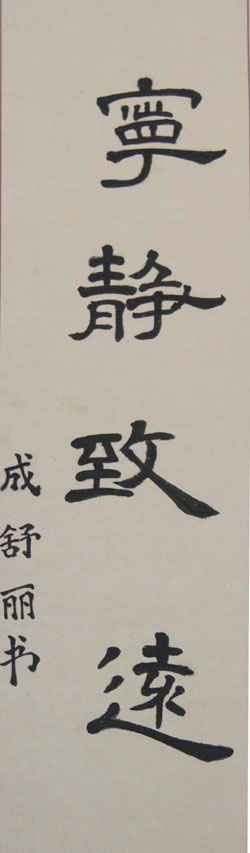 寧静致遠
成舒丽书